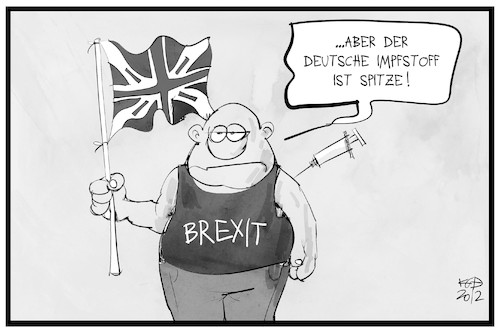 ...ABER DER
DEUTSCHE IMPFSTOFF
IST SPITZE!
BREXIT
20/2